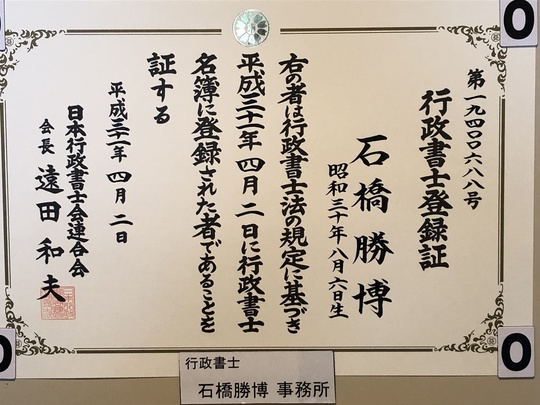 第一九四〇〇六八八号
行政書士登録証
石橋勝博
昭和三十年八月六日生
右の者は行政書士法の規定に基づき
平成三十一年四月二日に行政書士
名簿に登録された者であることを
証する
平成三十一年四月二日
日本行政書士会連合会
会長 遠田和夫
行政書士
石橋勝博 事務所
0
0
0